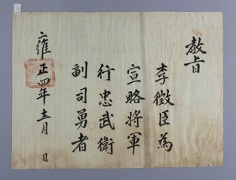 教旨
李徵臣爲
宣略將軍
行忠武衛
副司勇者
雍正四年十二月 日